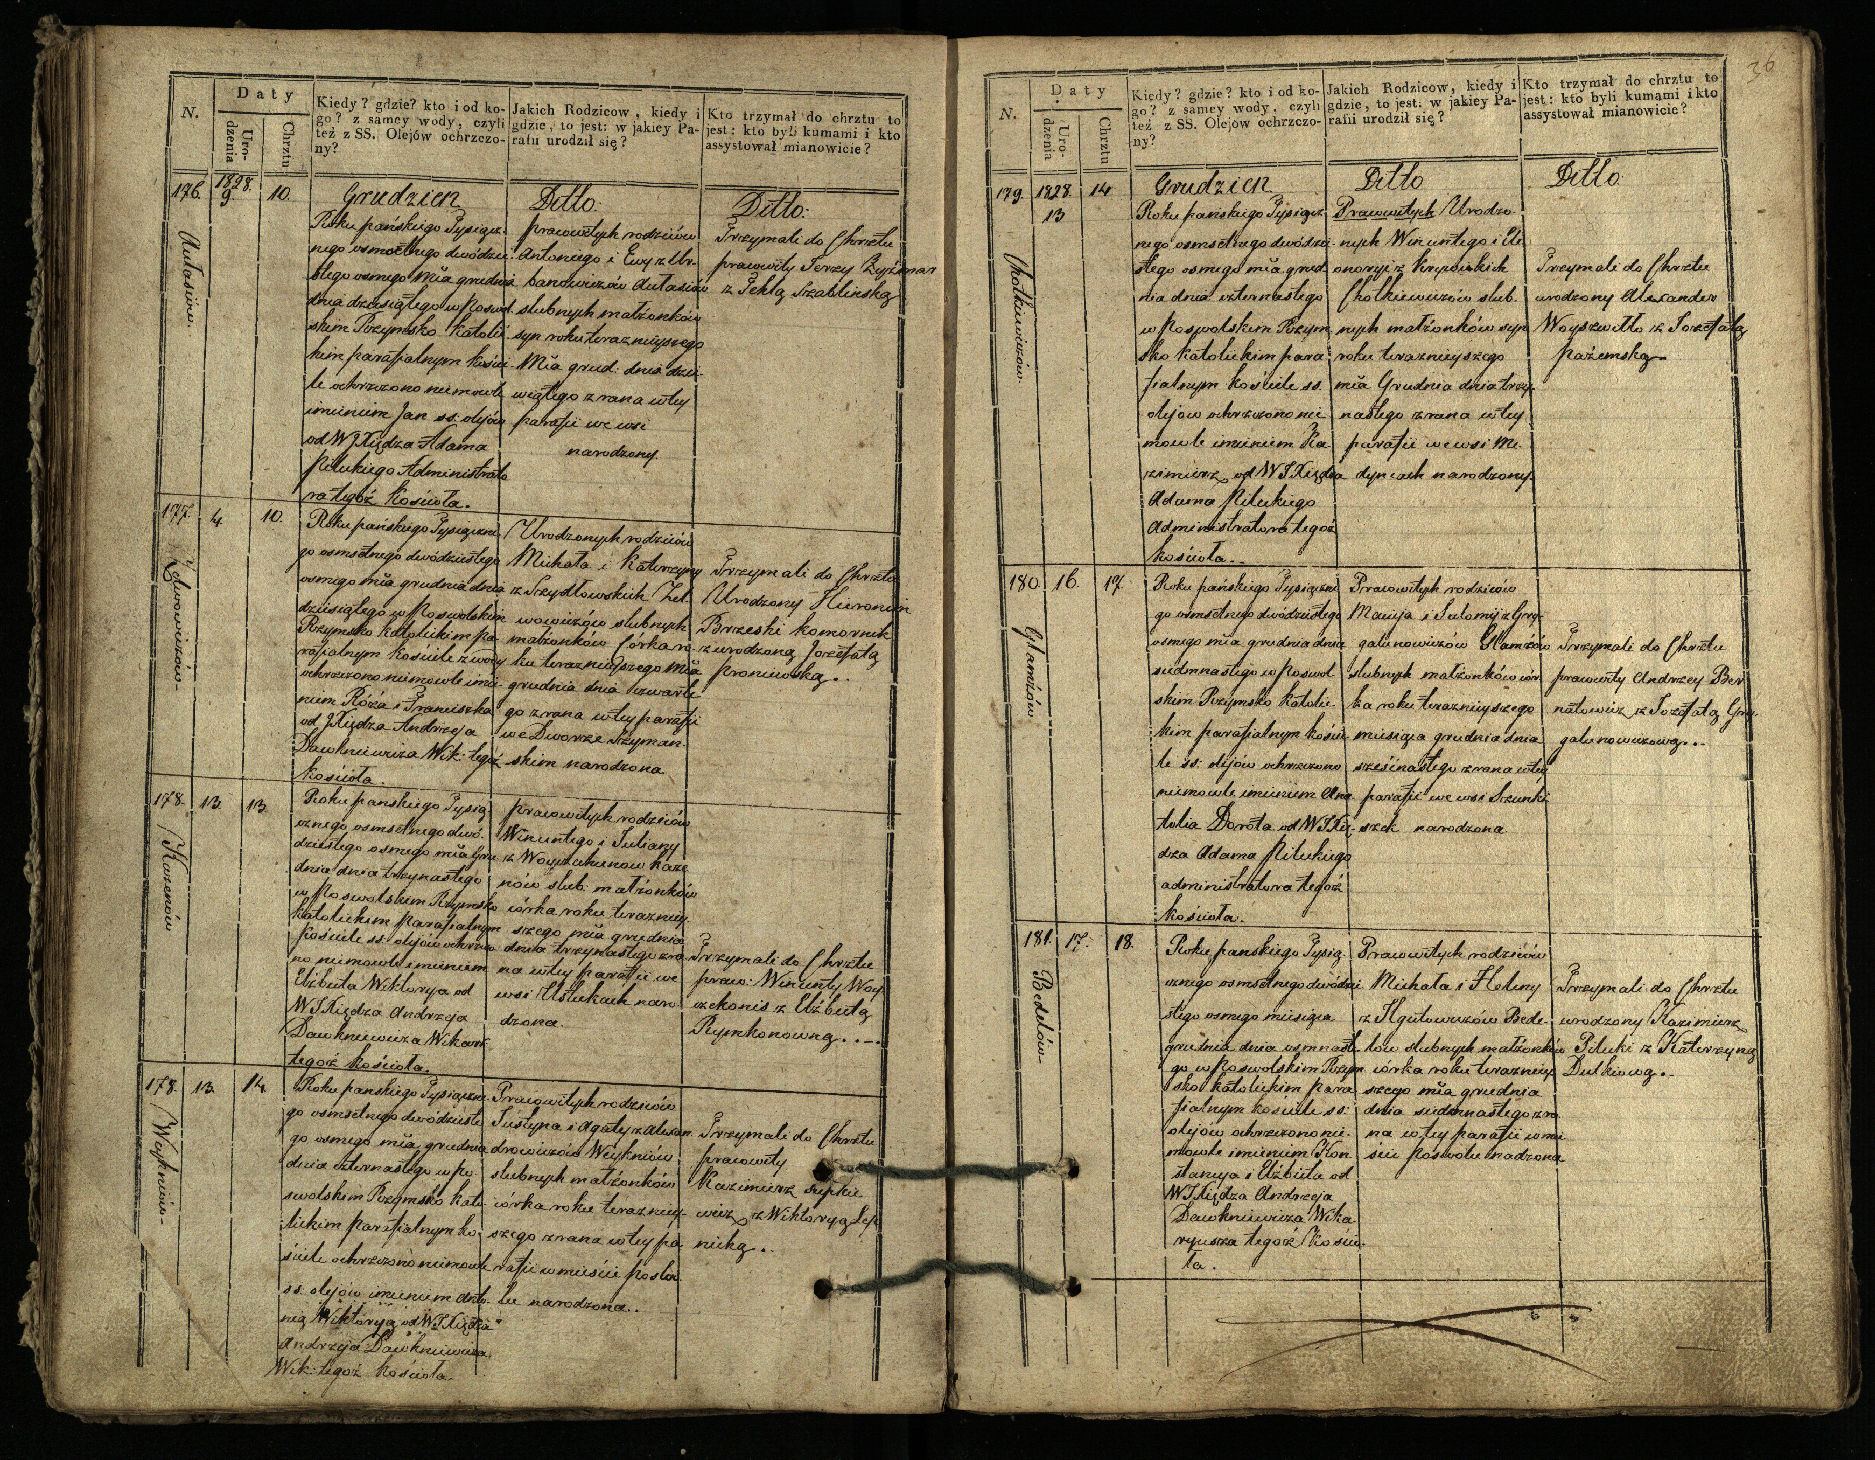 N.
Daty
Uro-
dzenia
Chrztu
Kiedy? gdzie? kto i od ko-
go? z samey wody, czyli
też z SS. Olejów ochrzczo-
ny?
Jakich Rodzicow, kiedy i
gdzie, to jest: w jakiey Pa-
rafii urodził się?
Kto trzymał do chrztu to
jest: kto byli kumami i kto
assystował mianowicie?
176.
1828.
9
10.
Grudzien
Roku pańskiego Tysiącz-
nego osmsetnego dwódzie-
stego osmego mca grudnia
dnia dziesiątego w Poswol-
skim Rzymsko Katolic-
kim parafialnym koście-
le ochrzczono niemowle
imieniem Jan ss. olejów
od WJXiędza Adama
Pileckiego Administrato
ra tegóż Kościoła.
Ditto.
pracowitych rodziców
Antoniego i Ewy z Ur-
banowiczów
slubnych małżonków
syn roku terazniejszego
Mca grud: dnia dzie-
wiątego z rana w tey
parafii we wsi
narodzony
Ditto:
Trzymali do Chrztu
pracowity Jerzy Zyżmar
z Teklą Szablinską
177.
4
10.
Roku pańskiego Tysiączne
go osmsetnego dwódziestego
osmego mca grudnia dnia
dziesiątego w Poswolskim
Rzymsko Katolickim pa-
rafialnym kościele z wody
ochrzczono niemowle imie-
niem Róża i Franciszka
od JXiędza Andrzeja
Dawkniewicza Wik: tegóż
kościoła.
Urodzonych rodziców
Michała i Katarzyny
z Szydłowskich Zel-
wowiczów slubnych
małżonków córka ro-
ku terazniejszego mca
grudnia dnia czwarte-
go z rana w tey parafii
we Dworze Szyman-
skim narodzona
Trzymali do Chrztu
Urodzony Hieronim
Brzeski komornik
z urodzoną Jozefatą
Proniewską..
178.
13
13
Korenów
Roku panskiego Tysią
cznego osmsetnego dwó-
dziestego osmego mca Gru
dnia dnia trzynastego
w Poswolskim Rzymsko
katolickim Parafialnym
kościele ss: olejów ochrzczo
no niemowle imieniem
Elżbieta Wiktorya od
WJXiędza Andrzeja
Dawkniewicza Wikar:
tegoż kościoła.
pracowitych rodziców
Wincentego i Julianny
nów slub: małżonków
córka roku terazniey-
szego mca grudnia
dnia trzynastego zra-
na w tey parafii we
wsi Ustukach naro-
dzona.
Trzymali do Chrztu
praco: Wincenty Woy
czekonis z Elżbietą
Rymkonowną..-.
178.
13
14
Roku panskiego Tysiączne-
go osmsetnego dwódzieste
go osmego mca grudnia
dnia czternastego w Po
swolskim Rzymsko kato
lickim parafialnym ko-
ściele ochrzczono niemowle
ss. olejów imieniem Anto-
nią Wiktoryą od WJXiędza
Andrzeja Dawkniewicza
Wik: tegóż kościoła.
Pracowitych rodziców
Justyna i Agaty z Alexan-
drowiczów
slubnych małżonków
córka roku terazniey-
szego z rana w tey pa-
rafii w mieście Poswo
lu narodzona..
Trzymali do Chrztu
pracowity
Kazimierz
wicz z Wiktoryą
nicką..
36
N.
Daty
Uro-
dzenia
Chrztu
Kiedy? gdzie? kto i od ko-
go? z samey wody, czyli
też z SS. Olejów ochrzczo-
ny?
Jakich Rodziców, kiedy i
gdzie, to jest: w jakiey Pa-
rafii urodził się?
Kto trzymał do chrztu to
jest: kto byli kumami i kto
assystował mianowicie?
179.
1828.
13
14
Chotkiewiczów.
Grudzien
Roku pańskiego Tysiącz-
nego osmsetnego dwódzie-
stego osmego mca grud-
nia dnia czternastego
w Poswolskim Rzym-
sko katolickim para-
fialnym kościele ss.
olejow ochrzczono nie-
mowle imieniem Ka
zimierz od WJXiędza
Adama Pileckiego
Administratora tegóż
kościoła..
Ditto
Pracowitych Urodzo-
nych Wincentego i Ele
onoryi z
Chotkiewiczów slub-
nych małżonków syn
roku terazniejszego
mca Grudnia dnia trzy-
nastego z rana w tey
parafii we wsi Me-
dyncach narodzony.
Ditto
Trzymali do Chrztu
urodzony Alexander
Woyszwiłło z Jozefatą
180.
16.
17.
Roku pańskiego Tysiączne
go osmsetnego dwódziestego
osmego mca grudnia dnia
siedmnastego w Poswol-
skim Rzymsko Katolic-
kim parafialnym kościе-
le ss: olejów ochrzczono
niemowle imieniem Ana-
tolia Dorota od WJXię-
dza Adama Pileckiego
administratora tegóż
kościoła.
Pracowitych rodziców
Macieja i Salomei z Gry-
galunowiczów
slubnych małżonków cór-
ka roku terazniejszego
miesiąca grudnia dnia
szesćnastego z rana w tey
parafii we wsi Szunki
szek narodzona
Trzymali do Chrztu
pracowity Andrzey Ber
natowicz z Jozefatą Gry-
galunowiczową...
181.
17.
18.
Bedelów.
Roku panskiego Tysią-
cznego osmsetnego dwódzie
stego osmego miesiąca
grudnia dnia osmnaste-
go w Poswolskim Rzym
sko katolickim para-
fialnym kościele ss:
olejów ochrzczono nie-
mowle imieniem Kon-
stancya i Elżbieta od
WJXiędza Andrzeja
Dawkniewicza Wika-
ryusza tegóż Kościo-
ła.
Pracowitych rodziców
Michała i Heleny
z Bede-
lów slubnych małżonków
córka roku terazniey-
szego mca grudnia
dnia siedmnastego zra-
na w tey parafii w mie
ście Poswolu nadzona
Trzymali do Chrztu
urodzony Kazimierz
Pilecki z Katarzyną
Dulkiową.-